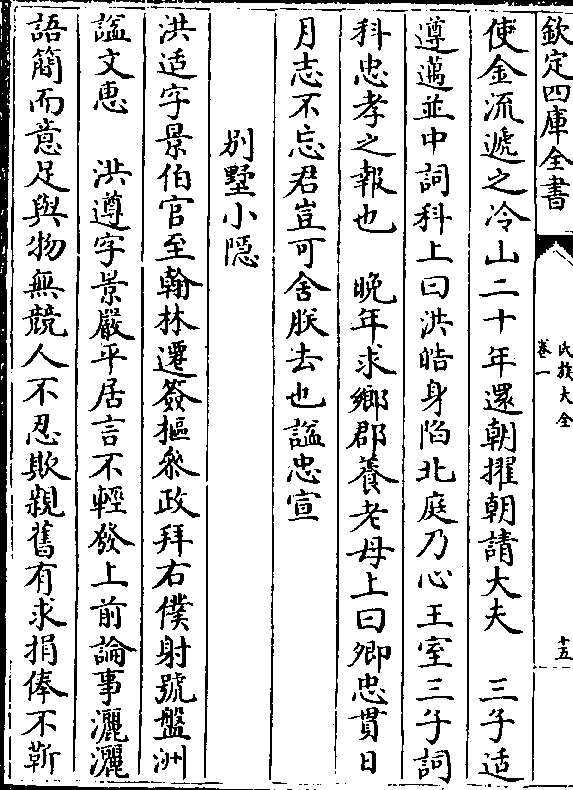 欽定四庫全書
氏族大全
卷一
十五
使金流遞之冷山二十年還朝擢朝請大夫　三子适
遵邁並中詞科上曰洪皓身陷北庭乃心王室三子詞
科忠孝之報也　晚年求鄉郡養老母上曰卿忠貫日
月志不忘君豈可舍朕去也諡忠宣
別墅小隱
洪适字景伯官至翰林遷簽樞參政拜右僕射號盤洲
諡文惠　洪遵字景嚴平居言不輕發上前論事灑灑
語簡而意足與物無競人不忍欺親舊有求捐俸不靳